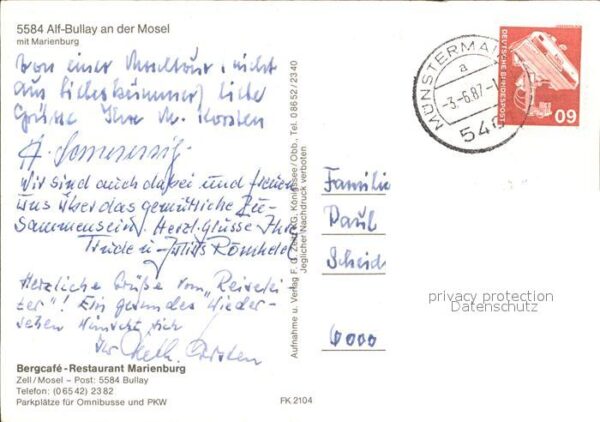 5584 Alf-Bullay an der Mosel
mit Marienburg
Von einer Moseltour, nicht
aus Liebeskummer, liebe
Grüsse Ihre M. Korsten
Wir sind auch dabei und freuen
uns über das gemütliche Zu-
sammensein. Herzl. Grüsse Ihre
Trude u. Julius
Herzliche Grüße vom "Reiselei
ter"! Ein gesundes Wieder-
sehen wünscht sich
Ihr
Bergcafé-Restaurant Marienburg
Zell/Mosel – Post: 5584 Bullay
Telefon: (06542) 2382
Parkplätze für Omnibusse und PKW
FK 2104
Aufnahme u. Verlag F. G. Zeitz KG, Königssee/Obb., Tel. 08652/2340
Jeglicher Nachdruck verboten
MÜNSTERMAI
a
-3.-6.87-1
540
DEUTSCHE BUNDESPOST
60
Familie
Paul
Scheid
6000
privacy protection
Datenschutz